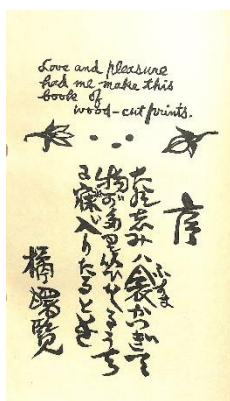 Love and pleasure
had me make this
book of
wood-cut prints.
序
たのしみハ衾かつぎて
ふすま
物がたりいひをるうち
に寝入りたるとき
橘曙覧